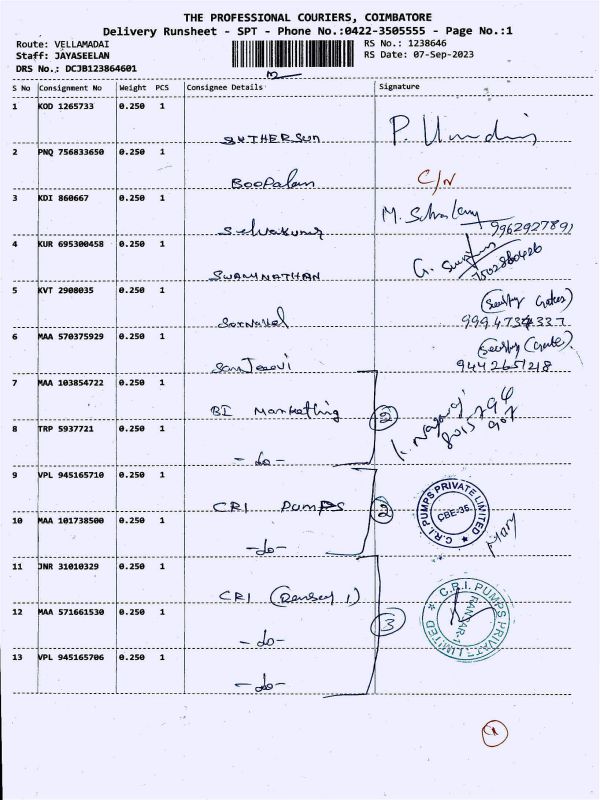 THE PROFESSIONAL COURIERS, COIMBATORE
Delivery Runsheet - SPT - Phone No.:0422-3505555 - Page No.:1
Route: VELLAMADAI RS No.: 1238646
Staff: JAYASEELAN RS Date: 07-Sep-2023
DRS No.: DCJB123864601
S No Consignment No Weight PCS Consignee Details Signature
1 KOD 1265733 0.250 1
SUTHERSUN
2 PNQ 756833650 0.250 1
Boopalan C/N
3 KDI 860667 0.250 1
Selvakumar M. 9962927891
4 KUR 695300458 0.250 1
SWAMINATHAN G. 7502860426
5 KVT 2908035 0.250 1
9994734337
6 MAA 570375929 0.250 1
Sanjeevi 9442651218
7 MAA 103854722 0.250 1
BI Marketing 2
8 TRP 5937721 0.250 1
-do-
9 VPL 945165710 0.250 1
CRI PUMPS 2 C.R.I. PUMPS PRIVATE LIMITED CBE-35.
10 MAA 101738500 0.250 1
-do-
11 JNR 31010329 0.250 1
CRI (Ransar 1)
12 MAA 571661530 0.250 1
-do- 3 C.R.I. PUMPS PRIVATE LIMITED RANSAR-1
13 VPL 945165706 0.250 1
-do-